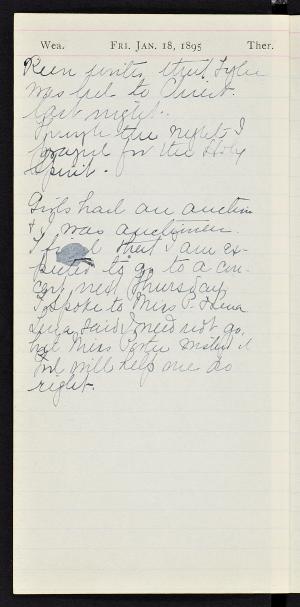 Wea. FRI. JAN. 18, 1895 Ther.
Keen writes that Tyler
was led to Christ
last night.
through the night I
prayed for the Holy
Spirit.
Girls had an auction
& I was auctioneer.
I find that I am ex-
pected to go to a con-
cert next Thursday
I spoke to Miss P.
said I need not go,
but Miss Porter
will help me do
right.